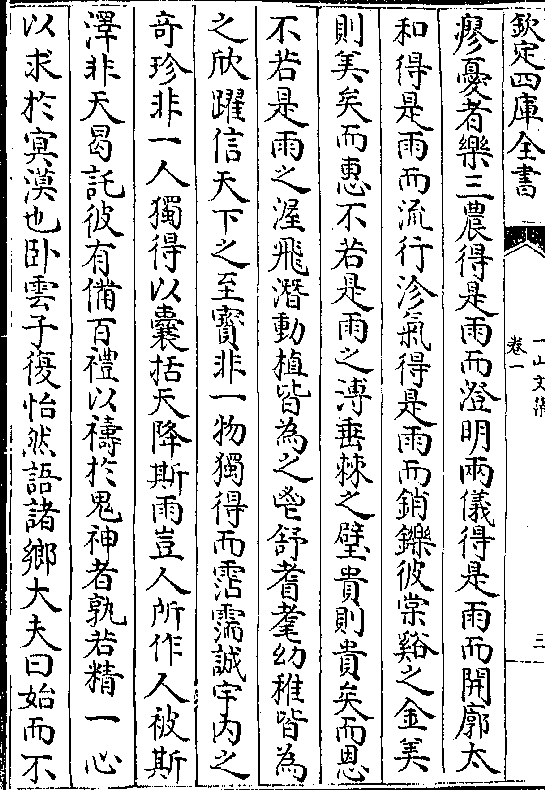 欽定四庫全書
一山文集
卷一
三
瘳憂者樂三農得是雨而澄明兩儀得是雨而開廓太
和得是雨而流行沴氣得是雨而銷鑠彼棠谿之金美
則美矣而惠不若是雨之溥垂棘之璧貴則貴矣而恩
不若是雨之渥飛潛動植皆為之鬯舒耆耄幼稚皆為
之欣躍信天下之至寳非一物獨得而霑濡誠宇内之
奇珍非一人獨得以囊括天降斯雨豈人所作人被斯
澤非天曷託彼有備百禮以禱於鬼神者孰若精一心
以求於㝠漠也卧雲子復怡然語諸鄉大夫曰始而不